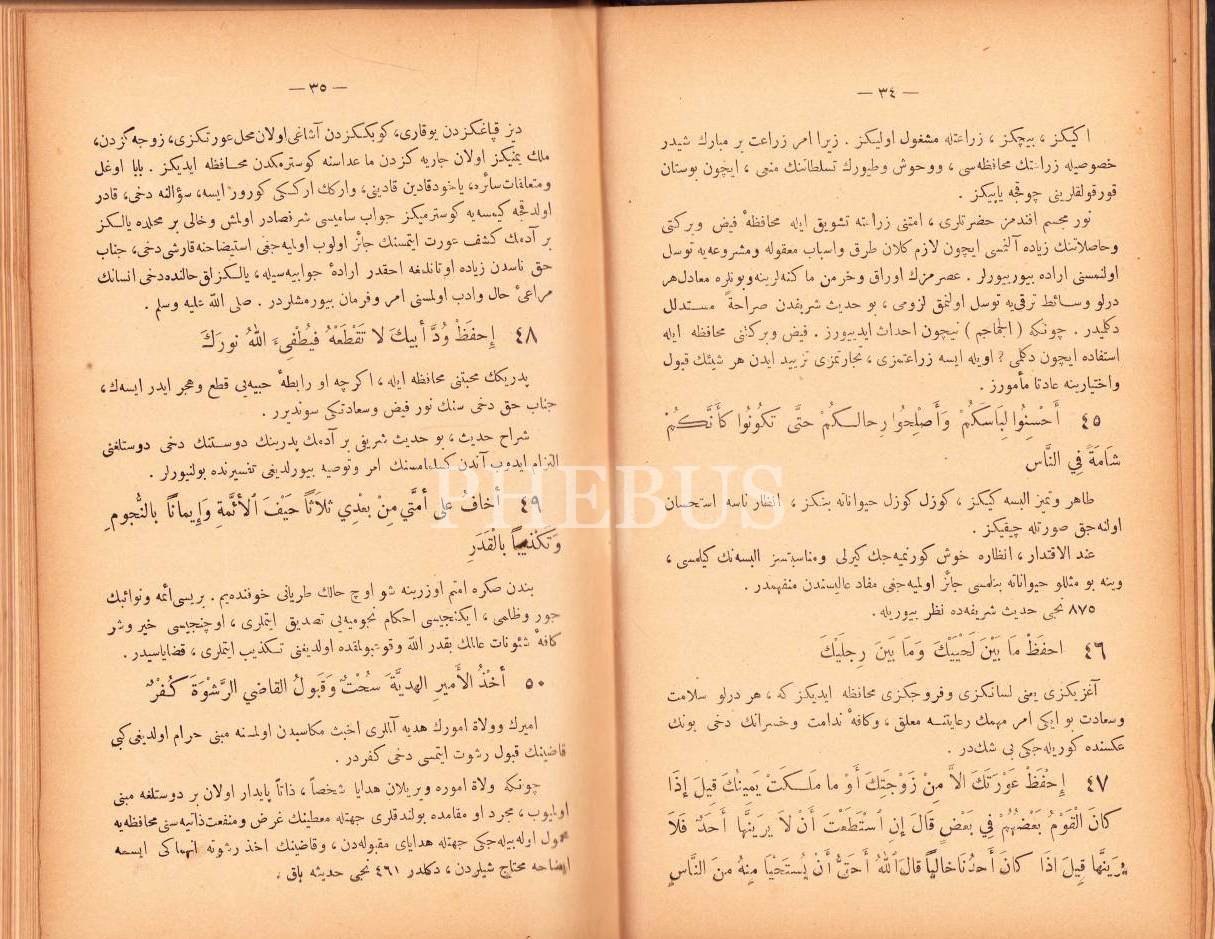 — ٣٤ —
اکیکز ، بیچکز ، زراعتله مشغول اولیکز . زیرا امر زراعت بر مبارك شیدر
خصوصیله زراعتك محافظه‌سی ، ووحوش وطیورك تسلطاتنك منعی ، ایچون بوستان
قورقولقلرینی چوقجه یاپیکز .
نور مجسم افندمز حضرتلری ، امتنی زراعته تشویق ایله محافظهٔ فیض وبرکتی
وحاصلاتنك زیاده آلنمسی ایچون لازم کلان طرق واسباب معقوله ومشروعه‌یه توسل
اولنمسنی اراده بیوریورلر . عصرمزك اوراق وخرمن ما کنه‌لرینه وبونلره معادل هر
درلو وسائط ترقی‌یه توسل اولنمق لزومی ، بو حدیث شریفدن صراحةً مستدلل
دکلیدر . چونکه ( الجماجم ) نیچون احداث ایدییورز . فیض وبرکتنی محافظه ایله
استفاده ایچون دکلمی ؟ اویله ایسه زراعتمزی ، تجارتمزی تزیید ایدن هر شیئك قبول
واختیارینه عادتا مأمورز .
٤٥ أَحْسِنُوا لِبَاسَكُمْ وَأَصْلِحُوا رِحالَـكُمْ حتَّى تَكُونُوا كَأَنَّـكُمْ
شَامَةٌ فِي النَّاس
طاهر وتمیز البسه کیکز ، کوزل کوزل حیواناته بنکز ، انظار ناسه استحسان
اولنه‌جق صورتله چیقیکز .
عند الاقتدار ، انظاره خوش کورنمیه‌جك کیرلی ومناسبتسز البسه‌نك کیلمسی ،
وینه بو مثللو حیواناته بنلمسی جائز اولمیه‌جغی مفاد عالیسندن منفهمدر .
٨٧٥ نجی حدیث شریفه‌ده نظر بیوریله .
٤٦ احفَظْ ما بَيْنَ لَحْيَيْكَ وَمَا بَيَنَ رِجلَيْكَ
آغزیکزی یعنی لسانکزی وفروجکزی محافظه ایدیکز که ، هر درلو سلامت
وسعادت بو ایکی امر مهمك رعایتنسه معلق ، وکافهٔ ندامت وخسرانك دخی بونك
عکسنده کوریله‌جکی بی شك‌در .
٤٧ إِحْفَظْ عَوْرَتَكَ الاَّ مِنْ زَوْجَتِكَ أَوْ ما مَلَـكَتْ يَمِينُكَ قِيلَ إذَا
كانَ القَوْمُ بَعْضُهُمْ فِي بَعْضٍ قالَ إنِ اسْتَطَعْتَ أنْ لاَ يرَيَنَّها أَحَدٌ فَلاَ
يرَيَنَّها قِيلَ اذَا كانَ أَحدُنَا خالياً قالَ اللهُ أَحَقُّ أَنْ يُسْتَحْيَا مِنهُ منَ النَّاسِ
— ٣٥ —
دیز قپاغکزدن یوقاری، کوبککزدن آشاغی اولان محل عورتکزی، زوجه کزدن،
ملك یمینکز اولان جاریه کزدن ما عداسنه کوسترمکدن محافظه ایدیکز . بابا اوغل
ومتعلقات سائره، یاخود قادین قادینی، وارکك ارککی کورور ایسه، سؤالنه دخی، قادر
اولدقجه کیمسه‌یه کوسترمیکز جواب سامیسی شرفصادر اولمش وخالی بر محلده یالکز
بر آدمك کشف عورت ایتمسنك جائز اولوب اولمیه‌جغی استیضاحنه قارشی دخی، جناب
حق ناسدن زیاده اوتانلمغه احقدر ارادهٔ جوابیه‌سیله، یالکزلق حالنده دخی انسانك
مراعیٔ حال وادب اولمسنی امر وفرمان بیورمشلردر . صلی الله علیه وسلم .
٤٨ إِحفَظْ وُدَّ أَبيكَ لا تَقْطَعْهُ فَيُطْفِىءَ اللهُ نورَكَ
پدریکك محبتنی محافظه ایله ، اکرچه او رابطهٔ حبیه‌یی قطع وهجر ایدر ایسه‌ك ،
جناب حق دخی سنك نور فیض وسعادتکی سوندیرر .
شراح حدیث ، بو حدیث شریفی بر آدمك پدرینك دوستنك دخی دوستلغنی
التزام ایدوب آندن کسلمامسنك امر وتوصیه بیورلدیغی تفسیرنده بولنیورلر .
PHEBUS
٤٩ أَخافُ على أُمَّتِي مِنْ بعْدِي ثَلاَثاً حَيْفَ الأَئِمَّةِ وَإِيماناً بالنُّجومِ
وَتَكْذيباً بالْقَدَرِ
بندن صکره امتم اوزرینه شو اوچ حالك طریانی خوفنده‌یم . بریسی ائمه ونوابك
جور وظلمی ، ایکنجیسی احکام نجومیه‌یی تصدیق ایتملری ، اوچنجیسی خیر وشر
کافهٔ شئونات عالمك بقدر الله وقوعبولمقده اولدیغنی تکذیب ایتملری ، قضایاسیدر .
٥٠ أَخْذُ الأَميرِ الهديَّةَ سُحْتٌ وَقَبولُ القاضي الرَّشْوَةَ كُفْرٌ
امیرك وولاة امورك هدیه آلملری اخبث مکاسبدن اولمسنه مبنی حرام اولدیغی کبی
قاضینك قبول رشوت ایتمسی دخی کفردر .
چونکه ولاة اموره ویریلان هدایا شخصاً ، ذاتاً پایدار اولان بر دوستلغه مبنی
اولمیوب ، مجرد او مقامده بولندقلری جهتله معطینك غرض ومنفعت ذاتیه‌سنی محافظه‌یه
محمول اوله‌بیله‌جکی جهتله هدایای مقبوله‌دن ، وقاضینك اخذ رشوته انهماکی ایسه
ایضاحه محتاج شیلردن ، دکلدر ٤٦١ نجی حدیثه باق .